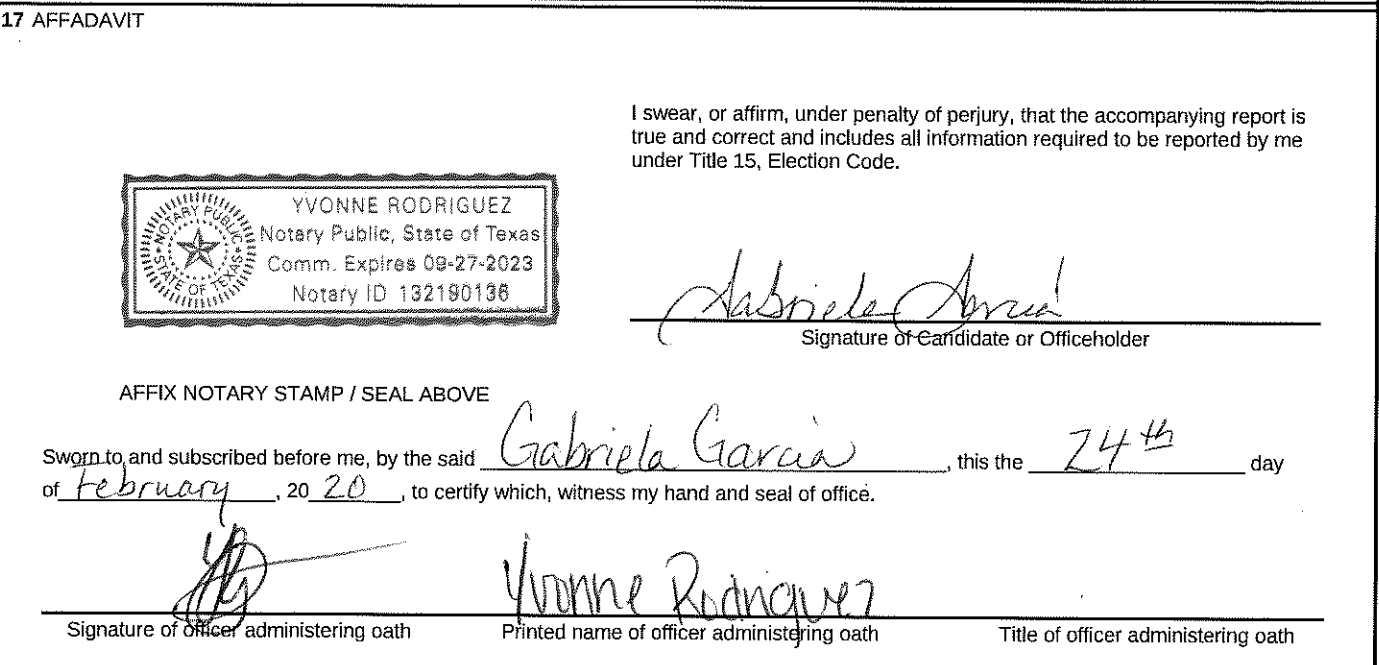 17 AFFADAVIT
I swear, or affirm, under penalty of perjury, that the accompanying report is
true and correct and includes all information required to be reported by me
under Title 15, Election Code.
YVONNE RODRIGUEZ
Notary Public, State of Texas
Comm. Expires 09-27-2023
Notary ID 132190136
NOTARY PUBLIC
STATE OF TEXAS
Gabriela Garcia
Signature of Candidate or Officeholder
AFFIX NOTARY STAMP / SEAL ABOVE
Sworn to and subscribed before me, by the said Gabriela Garcia, this the 24th day
of February, 20 20, to certify which, witness my hand and seal of office.
Yvonne Rodriguez
Signature of officer administering oath Printed name of officer administering oath Title of officer administering oath